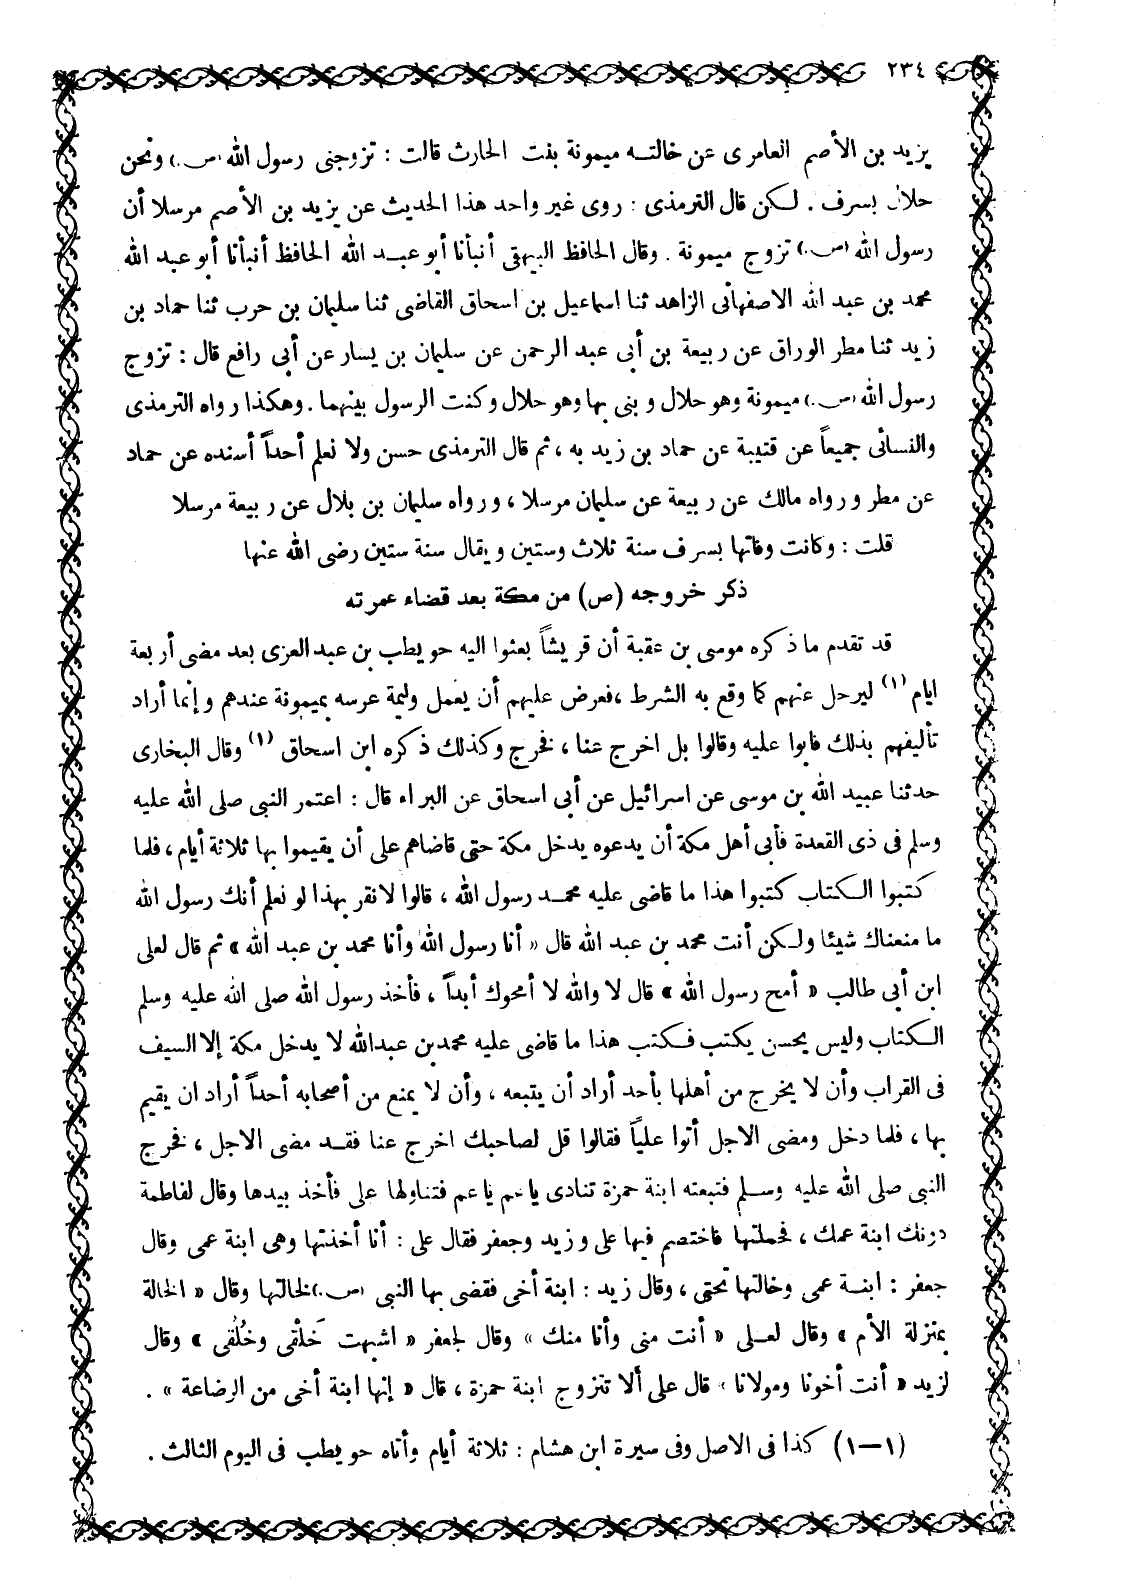 ٢٣٤
يزيد بن الأصم العامرى عن خالته ميمونة بنت الحارث قالت : تزوجنى رسول الله (ص.) ونحن
حلال بسرف . لكن قال الترمذى : روى غير واحد هذا الحديث عن يزيد بن الأصم مرسلا أن
رسول الله (ص.) تزوج ميمونة . وقال الحافظ البيهقى أنبأنا أبو عبد الله الحافظ أنبأنا أبو عبد الله
محمد بن عبد الله الاصفهانى الزاهد ثنا اسماعيل بن اسحاق القاضى ثنا سليمان بن حرب ثنا حماد بن
زيد ثنا مطر الوراق عن ربيعة بن أبى عبد الرحمن عن سليمان بن يسار عن أبى رافع قال : تزوج
رسول الله (ص.) ميمونة وهو حلال وبنى بها وهو حلال وكنت الرسول بينهما . وهكذا رواه الترمذى
والنسائى جميعاً عن قتيبة عن حماد بن زيد به ، ثم قال الترمذى حسن ولا نعلم أحداً أسنده عن حماد
عن مطر ورواه مالك عن ربيعة عن سليمان مرسلا ، ورواه سليمان بن بلال عن ربيعة مرسلا
قلت : وكانت وفاتها بسرف سنة ثلاث وستين ويقال سنة ستين رضى الله عنها
ذكر خروجه (ص) من مكة بعد قضاء عمرته
قد تقدم ما ذكره موسى بن عقبة أن قريشاً بعثوا اليه حويطب بن عبد العزى بعد مضى أربعة
ايام (١) ليرحل عنهم كما وقع به الشرط ، فعرض عليهم أن يعمل وليمة عرسه بميمونة عندهم وإنما أراد
تأليفهم بذلك فابوا عليه وقالوا بل اخرج عنا ، فخرج وكذلك ذكره ابن اسحاق (١) وقال البخارى
حدثنا عبيد الله بن موسى عن اسرائيل عن أبى اسحاق عن البراء قال : اعتمر النبى صلى الله عليه
وسلم فى ذى القعدة فأبى أهل مكة أن يدعوه يدخل مكة حتى قاضاهم على أن يقيموا بها ثلاثة أيام ، فلما
كتبوا الكتاب كتبوا هذا ما قاضى عليه محمد رسول الله ، قالوا لا نقر بهذا لو نعلم أنك رسول الله
ما منعناك شيئا ولكن أنت محمد بن عبد الله قال « أنا رسول الله وأنا محمد بن عبد الله » ثم قال لعلى
ابن أبى طالب « أمح رسول الله » قال لا والله لا أمحوك أبداً ، فأخذ رسول الله صلى الله عليه وسلم
الكتاب وليس يحسن يكتب فكتب هذا ما قاضى عليه محمد بن عبد الله لا يدخل مكة إلا السيف
فى القراب وأن لا يخرج من أهلها بأحد أراد أن يتبعه ، وأن لا يمنع من أصحابه أحداً أراد ان يقيم
بها ، فلما دخل ومضى الاجل أتوا علياً فقالوا قل لصاحبك اخرج عنا فقد مضى الاجل ، فخرج
النبى صلى الله عليه وسلم فتبعته ابنة حمزة تنادى يا عم يا عم فتناولها على فأخذ بيدها وقال لفاطمة
دونك ابنة عمك ، فحملتها فاختصم فيها على وزيد وجعفر فقال على : أنا أخذتها وهى ابنة عمى وقال
جعفر : ابنة عمى وخالتها تحتى ، وقال زيد : ابنة أخى فقضى بها النبى (ص.) لخالتها وقال « الخالة
بمنزلة الأم » وقال لعلى « أنت منى وأنا منك » وقال لجعفر « اشبهت خَلْقى وخُلُقى » وقال
لزيد « أنت أخونا ومولانا » قال على ألا تتزوج ابنة حمزة ، قال « إنها ابنة أخى من الرضاعة » .
(١—١) كذا فى الاصل وفى سيرة ابن هشام : ثلاثة أيام وأتاه حويطب فى اليوم الثالث .